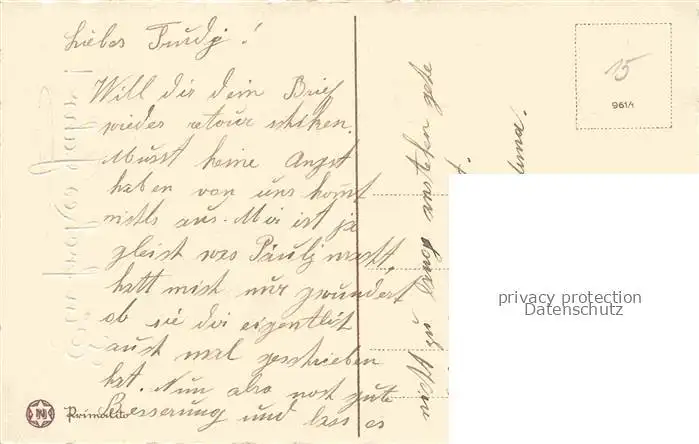 Liebes Trudj!
Will dir dein Brief
wieder retour schiken.
Musst keine Angst
haben von uns komt
nichts aus. Mir ist ja
gleich was Paulj macht,
hatt mich nur gwundert
ob sie dir eigentlich
auch mal geschrieben
hat. Nun also noch gute
Besserung und lass es
nicht zu lang anstehen
15
9614
N Primalito
privacy protection
Datenschutz